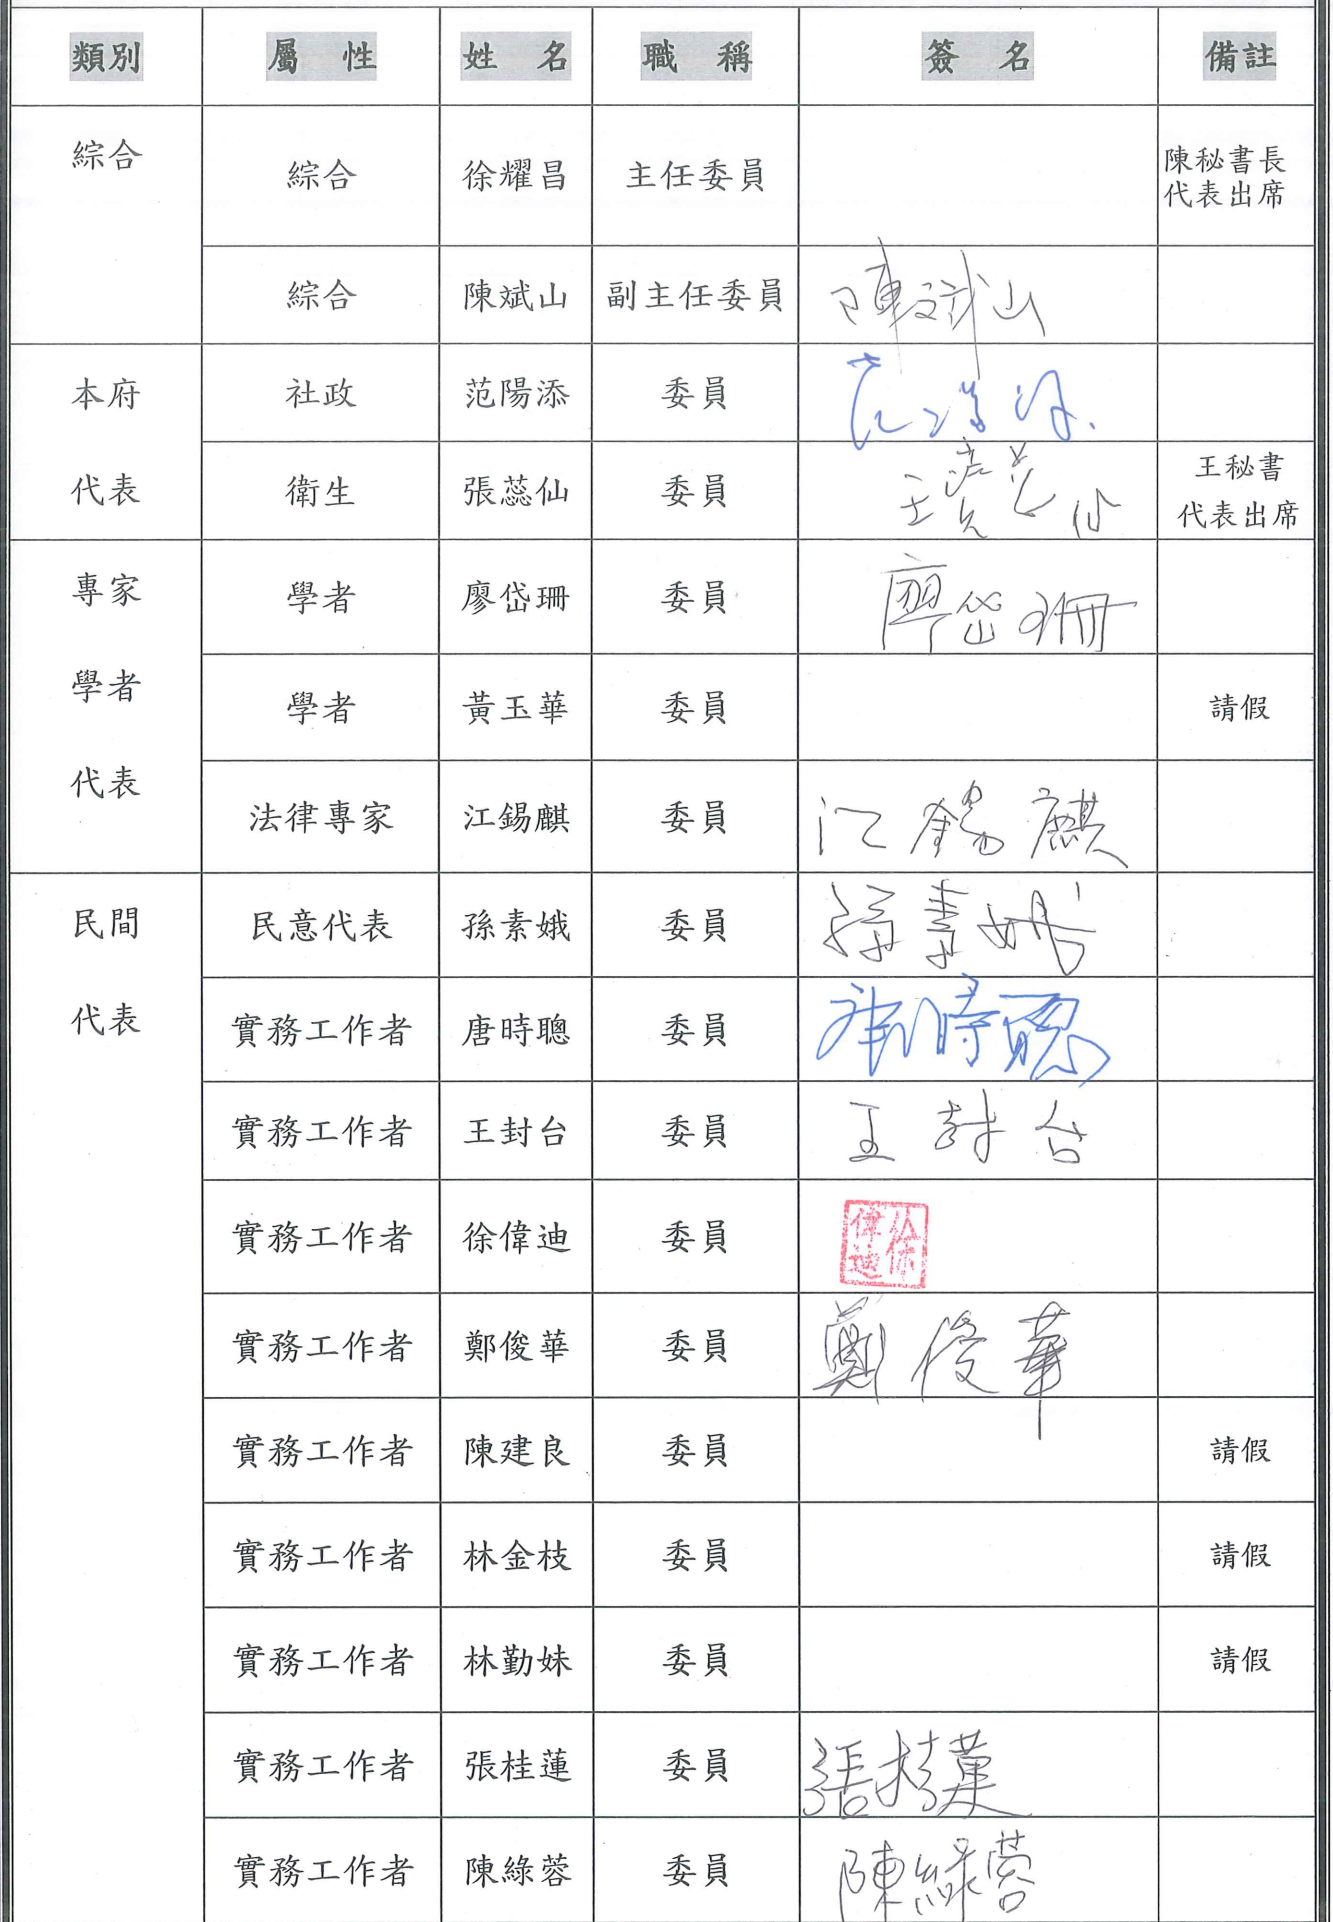 類別 屬性 姓名 職稱 簽名 備註
綜合 綜合 徐耀昌 主任委員 陳秘書長
代表出席
綜合 陳斌山 副主任委員 陳斌山
本府 社政 范陽添 委員 范陽添
代表 衛生 張蕊仙 委員 王 代 王秘書
代表出席
專家 學者 廖岱珊 委員 廖岱珊
學者 學者 黃玉華 委員 請假
代表 法律專家 江錫麒 委員 江錫麒
民間 民意代表 孫素娥 委員 孫素娥
代表 實務工作者 唐時聰 委員 唐時聰
實務工作者 王封台 委員 王封台
實務工作者 徐偉迪 委員 徐偉迪
實務工作者 鄭俊華 委員 鄭俊華
實務工作者 陳建良 委員 請假
實務工作者 林金枝 委員 請假
實務工作者 林勤妹 委員 請假
實務工作者 張桂蓮 委員 張桂蓮
實務工作者 陳綠蓉 委員 陳綠蓉